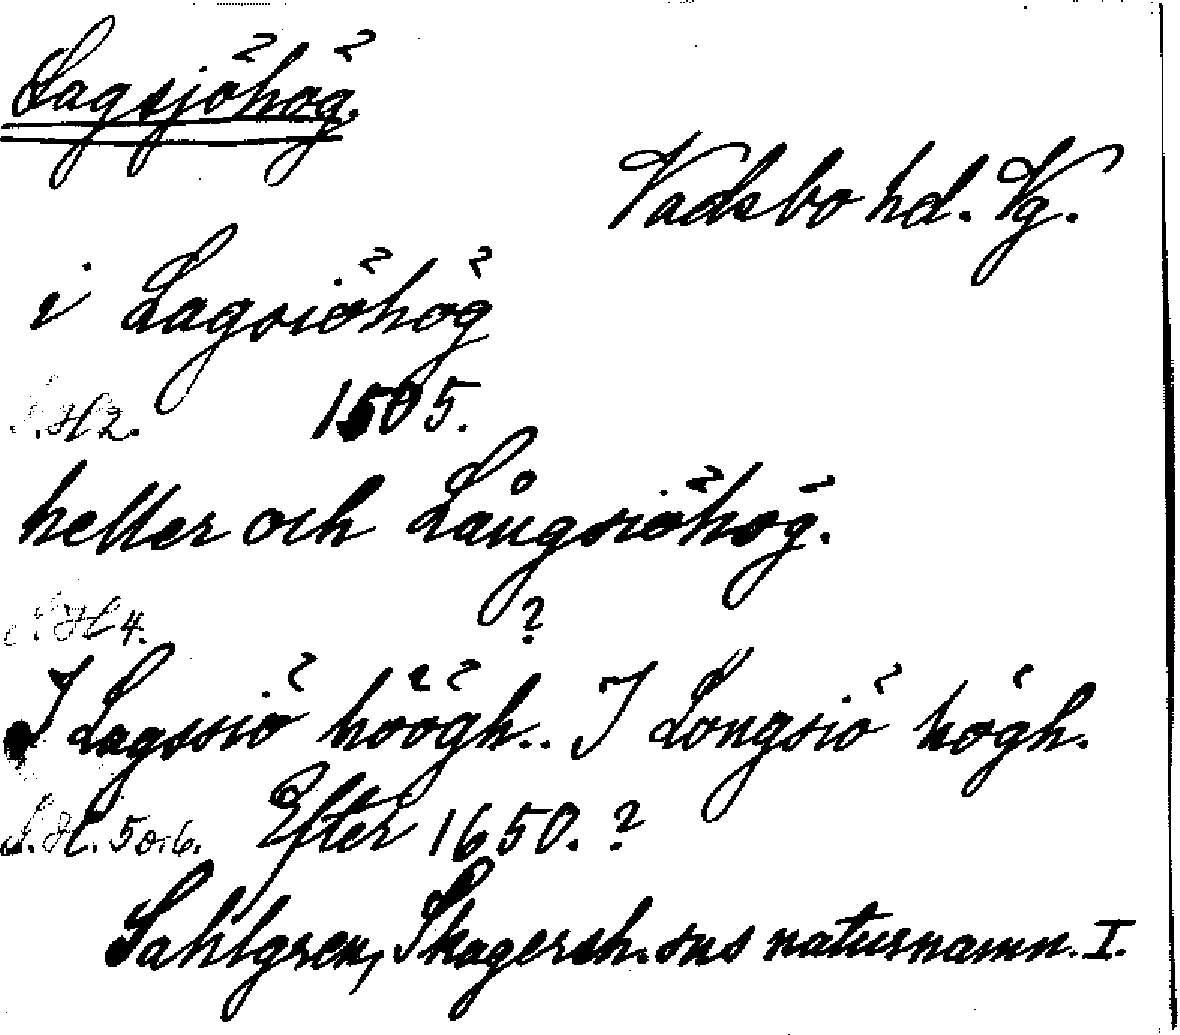 Lagsjöhög.
Vadsbo hd. Vg.
i Lagsiöhög
S.H 2. 1505.
heller och Långsiöhög.
S.H 4. ?
I Lagssiö höögh.. I Longsiö högh.
S.H. 5 o. 6. Efter 1650. ?
Sahlgren, Skagersh. sns naturnamn. I.